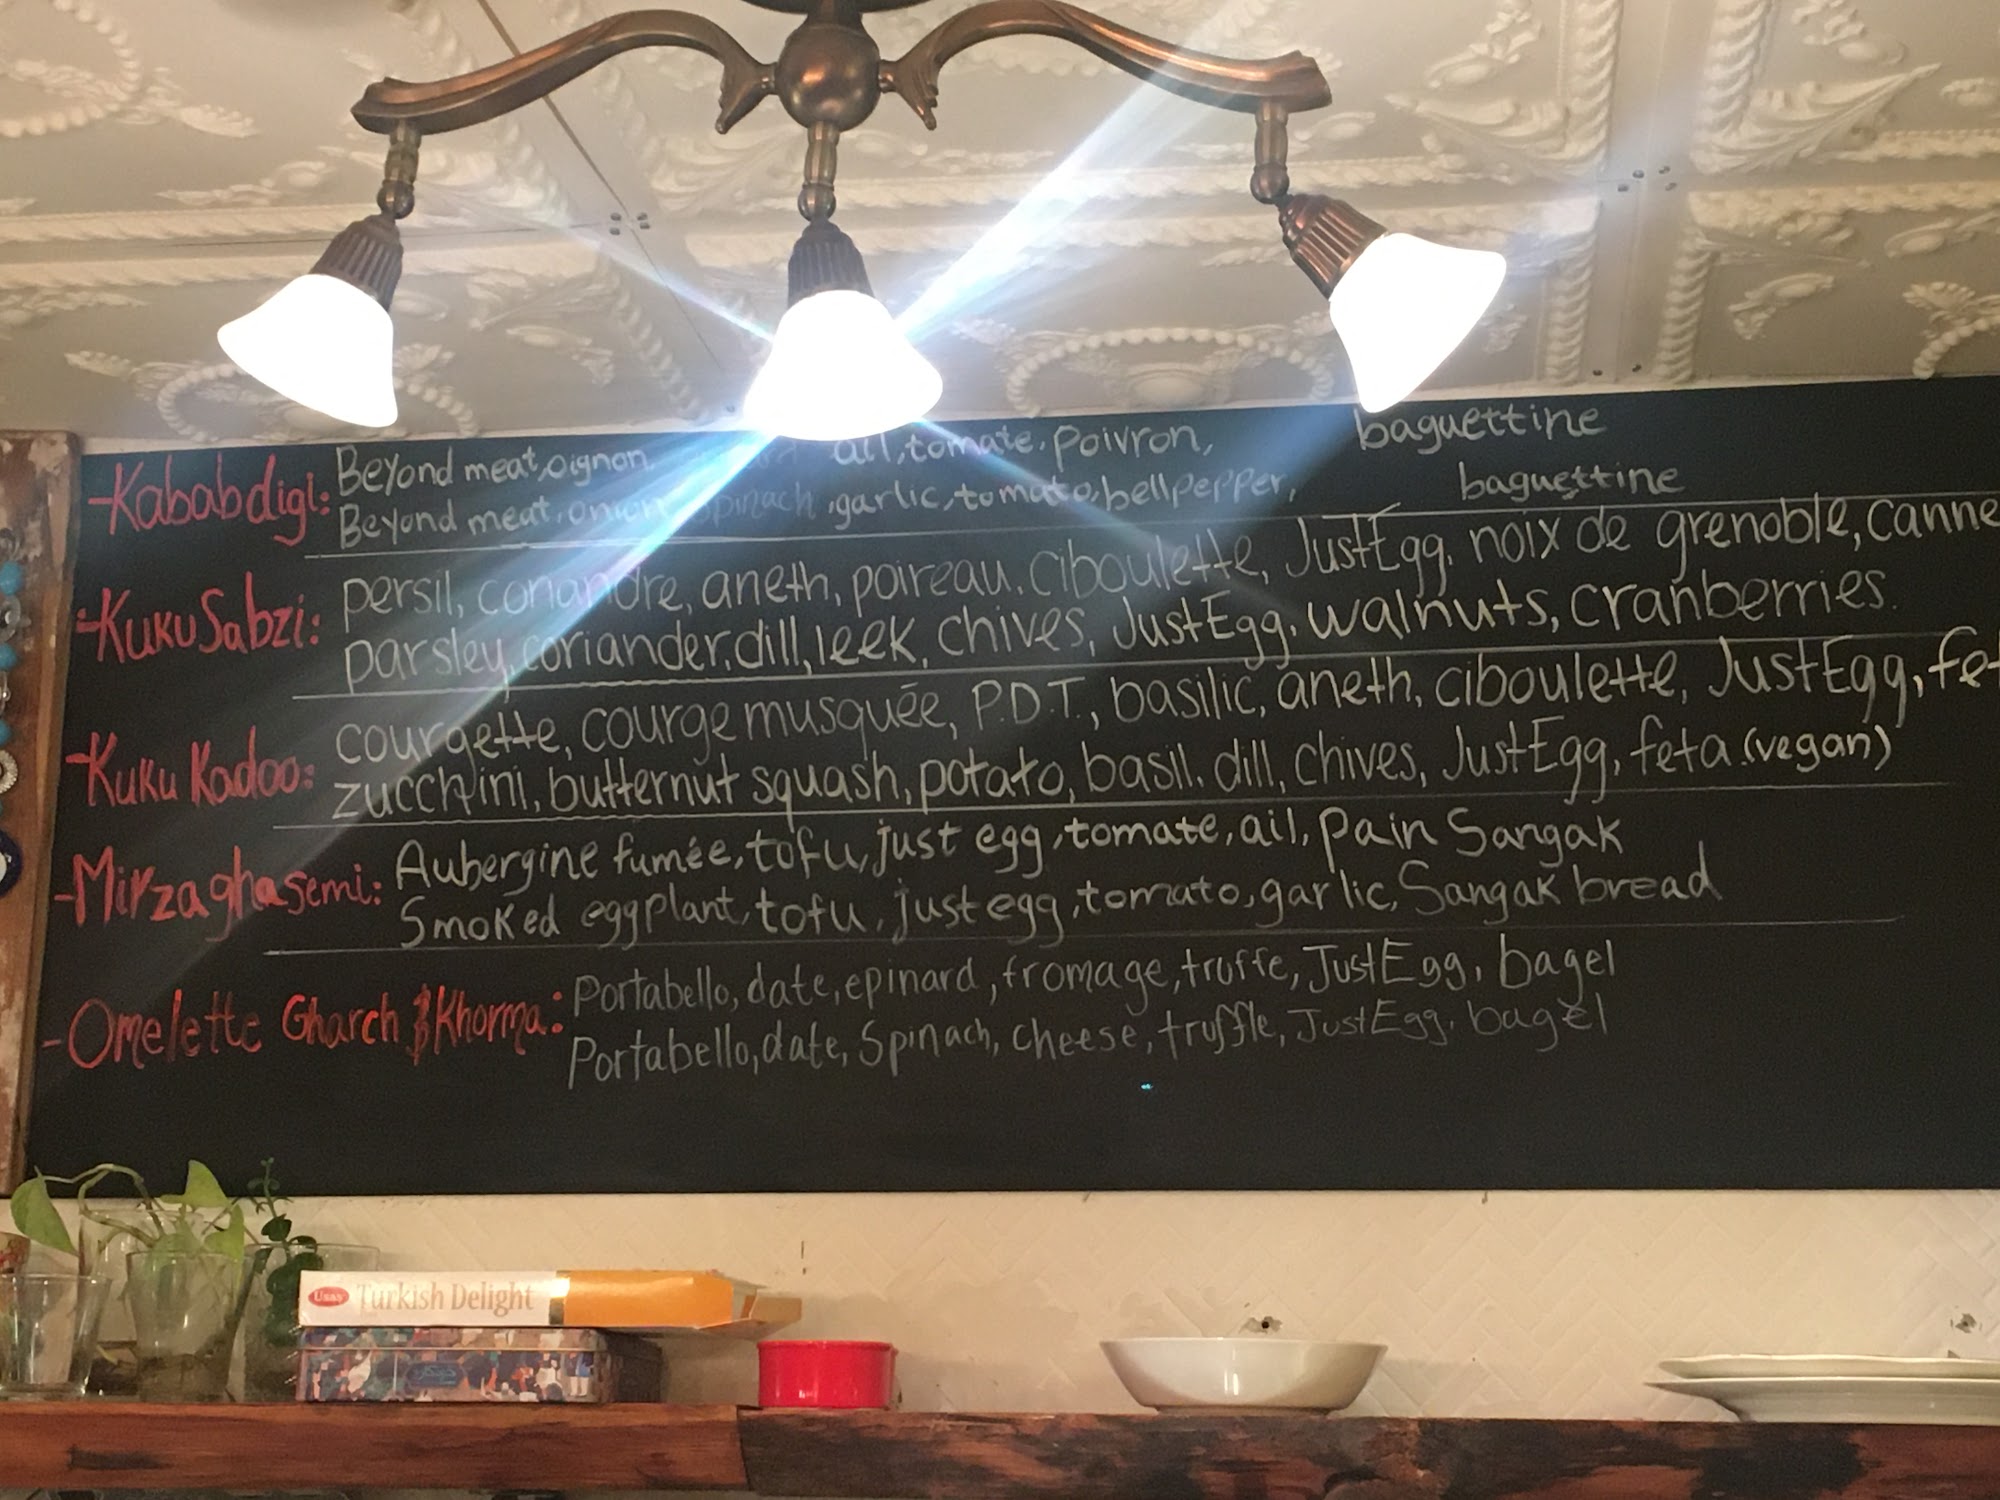 -Kababdigi:
Beyond meat, oignon, ail, tomate, poivron, baguettine
Beyond meat, onion, spinach, garlic, tomato, bellpepper, baguettine
-Kuku Sabzi:
persil, coriandre, aneth, poireau, ciboulette, JustEgg, noix de grenoble, canne
parsley, coriander, dill, leek, chives, JustEgg, walnuts, cranberries.
-Kuku Kadoo:
courgette, courge musquée, P.D.T., basilic, aneth, ciboulette, JustEgg, fet
zucchini, butternut squash, potato, basil, dill, chives, JustEgg, feta (vegan)
-Mirzaghasemi:
Aubergine fumée, tofu, just egg, tomate, ail, pain Sangak
Smoked eggplant, tofu, just egg, tomato, garlic, Sangak bread
-Omelette Gharch & Khorma:
Portabello, date, epinard, fromage, truffe, JustEgg, bagel
Portabello, date, Spinach, cheese, truffle, JustEgg, bagel
Usas Turkish Delight